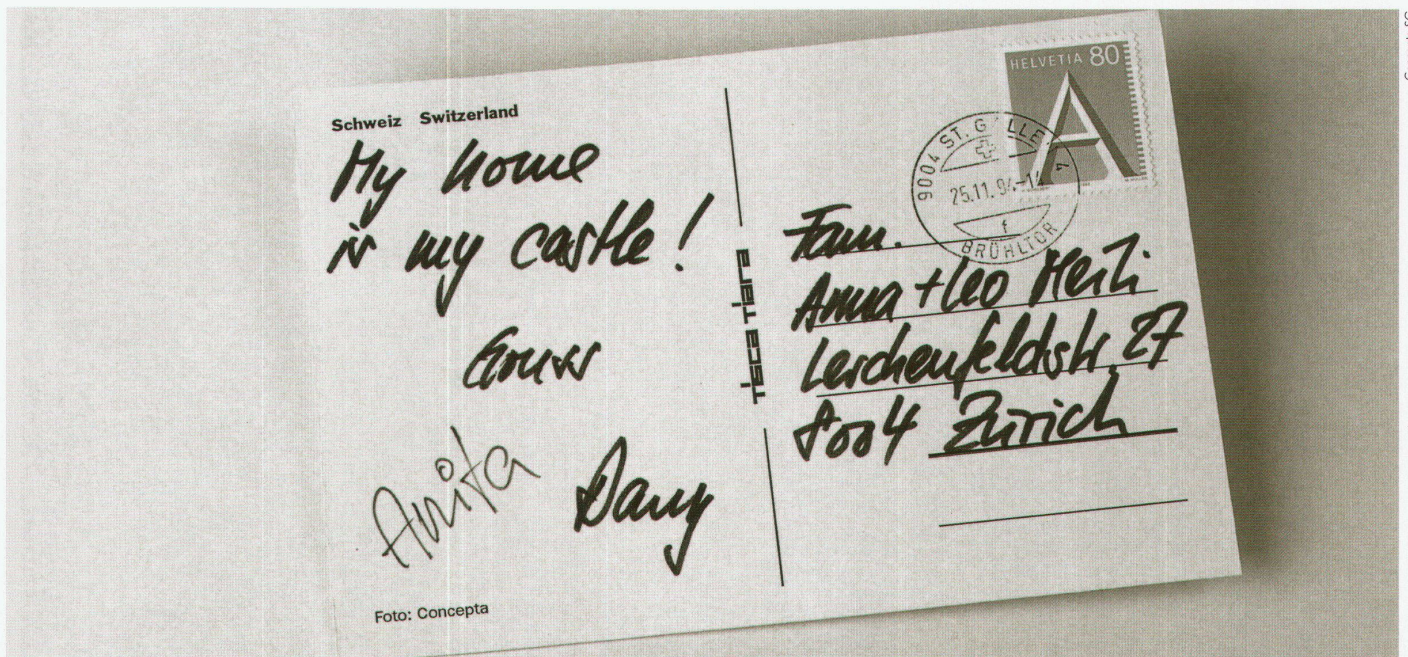 Schweiz Switzerland
My home
is my castle!
Gruss
Anita
Dany
Foto: Concepta
tisca tiara
HELVETIA 80
A
9004 ST. GALLEN
25.11.94-14
f
BRÜHLTOR
Fam.
Anna + Leo Merli
Lerchenfeldstr. 27
8004 Zürich